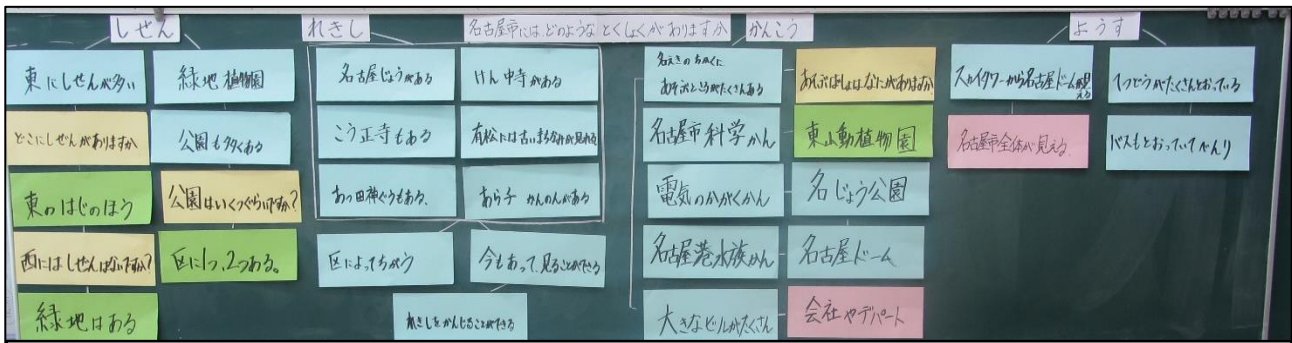 しぜん
れきし
名古屋市には、どのようなとくしょくがありますか
かんこう
ようす
東にしぜんが多い
どこにしぜんがありますか
東のはじのほう
西にはしぜんはないですか?
緑地はある
緑地 植物園
公園も多くある
公園はいくつぐらいですか?
区に1つ、2つある。
名古屋じょうがある
こう正寺もある
あつ田神ぐうもある、
けん中寺がある
有松には古いまち並みが見れる
あら子 かんのんがある
区によってちがう
今もあって、見ることができる
れきしをかんじることができる
名えきのちかくに
あそぶところがたくさんある
名古屋市科学かん
電気のかがくかん
名古屋港水族かん
大きなビルがたくさん
あそぶばしょはなにがありますか
東山動植物園
名じょう公園
名古屋ドーム
会社やデパート
スカイタワーから名古屋ドームが見える
名古屋市全体が見える、
てつどうがたくさんとおっている
バスもとおっていてべんり